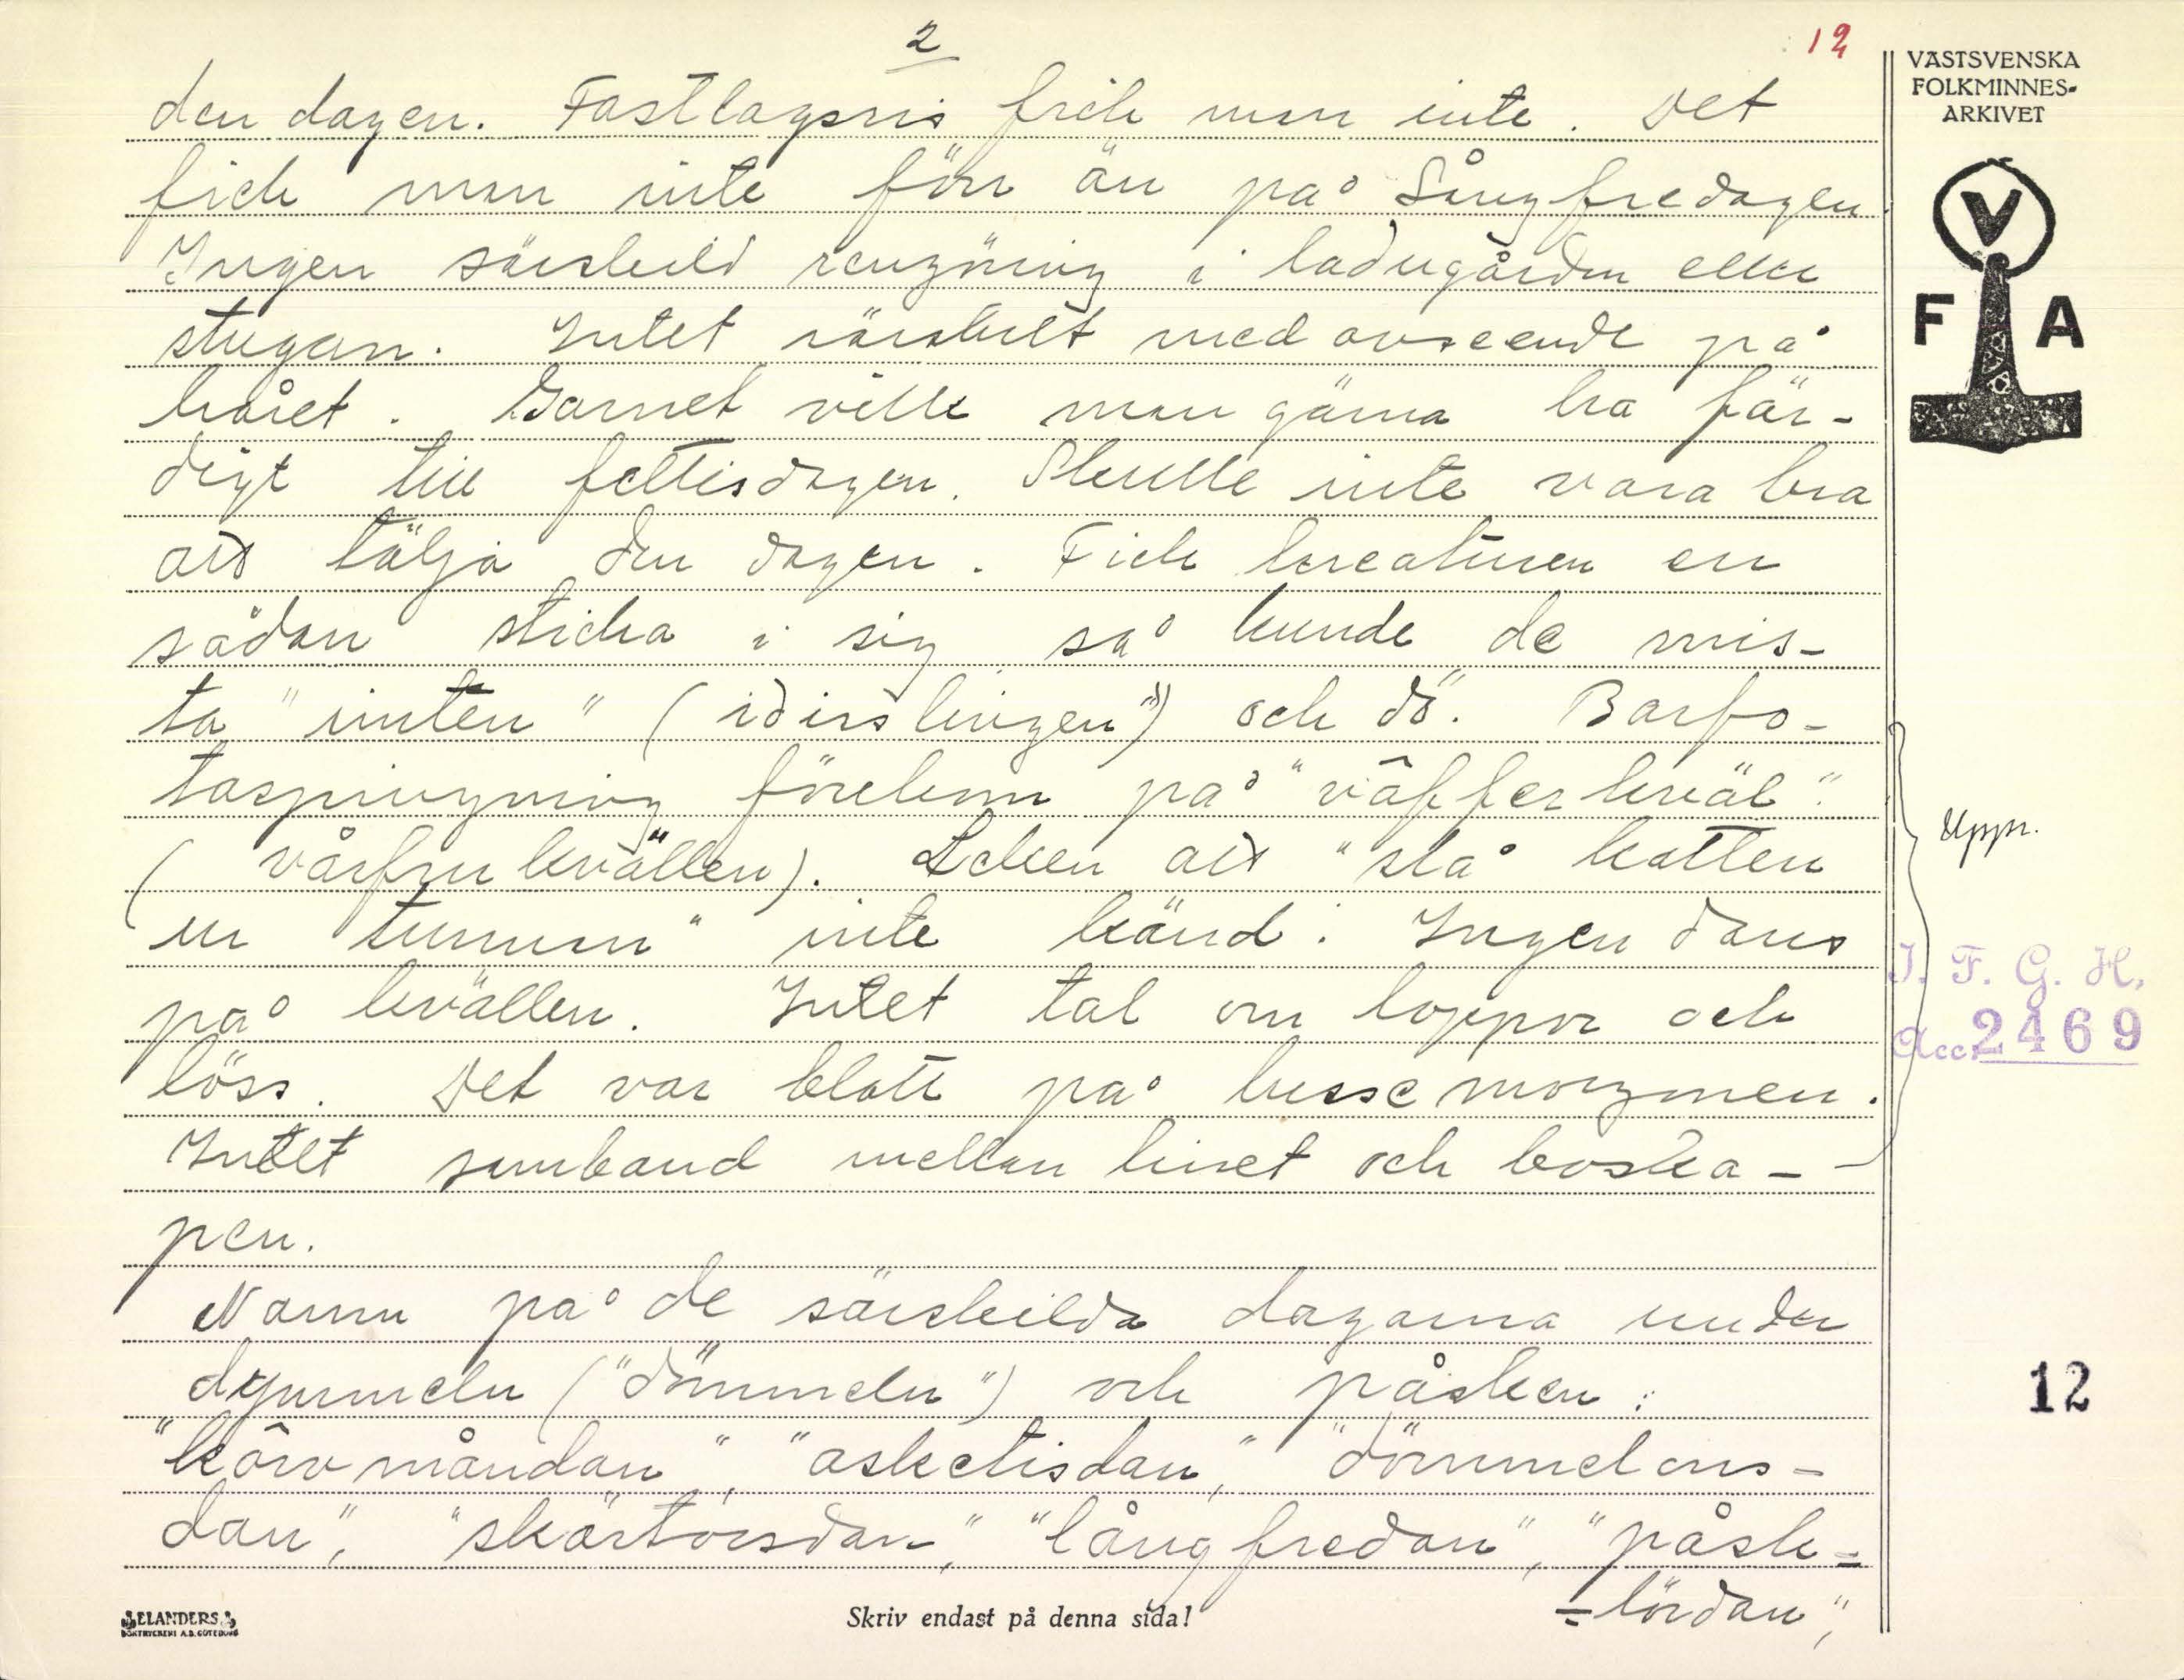 2
12
VÄSTSVENSKA
FOLKMINNES-
ARKIVET
V
F A
den dagen. Fastlagsris fick man inte. Det
fick man inte förr än på Långfredagen
Ingen särskild rengöring i ladugården eller
stugan. Intet särskilt med avseende på
håret. Garnet ville man gärna ha fär-
digt till fettisdagen. Skulle inte vara bra
att tälja den dagen. Fick kreaturen en
sådan sticka i sig så kunde de mis-
ta "imten" (idisslingen") och dö. Barfo-
taspringning förekom på "våffer kväl".
(vårfrukvällen). Leken att "slå katten
ur tunnan" inte känd. Ingen dans
på kvällen. Intet tal om loppor och
löss. Det var blott på lussemorgonen.
Intet samband mellan linet och boska-
pen.
Namn på de särskilda dagarna under
dymmeln ("dömmeln") och påsken:
"kôrvmåndan", "asketisdan", "dömmelons-
dan", "skärtorsdan", "långfredan", "påsk-
=lördan",
Uppr.
I. F. G. H.
Acc. 2469
12
ELANDERS
BOKTRYCKERI A.B. GÖTEBORG
Skriv endast på denna sida!